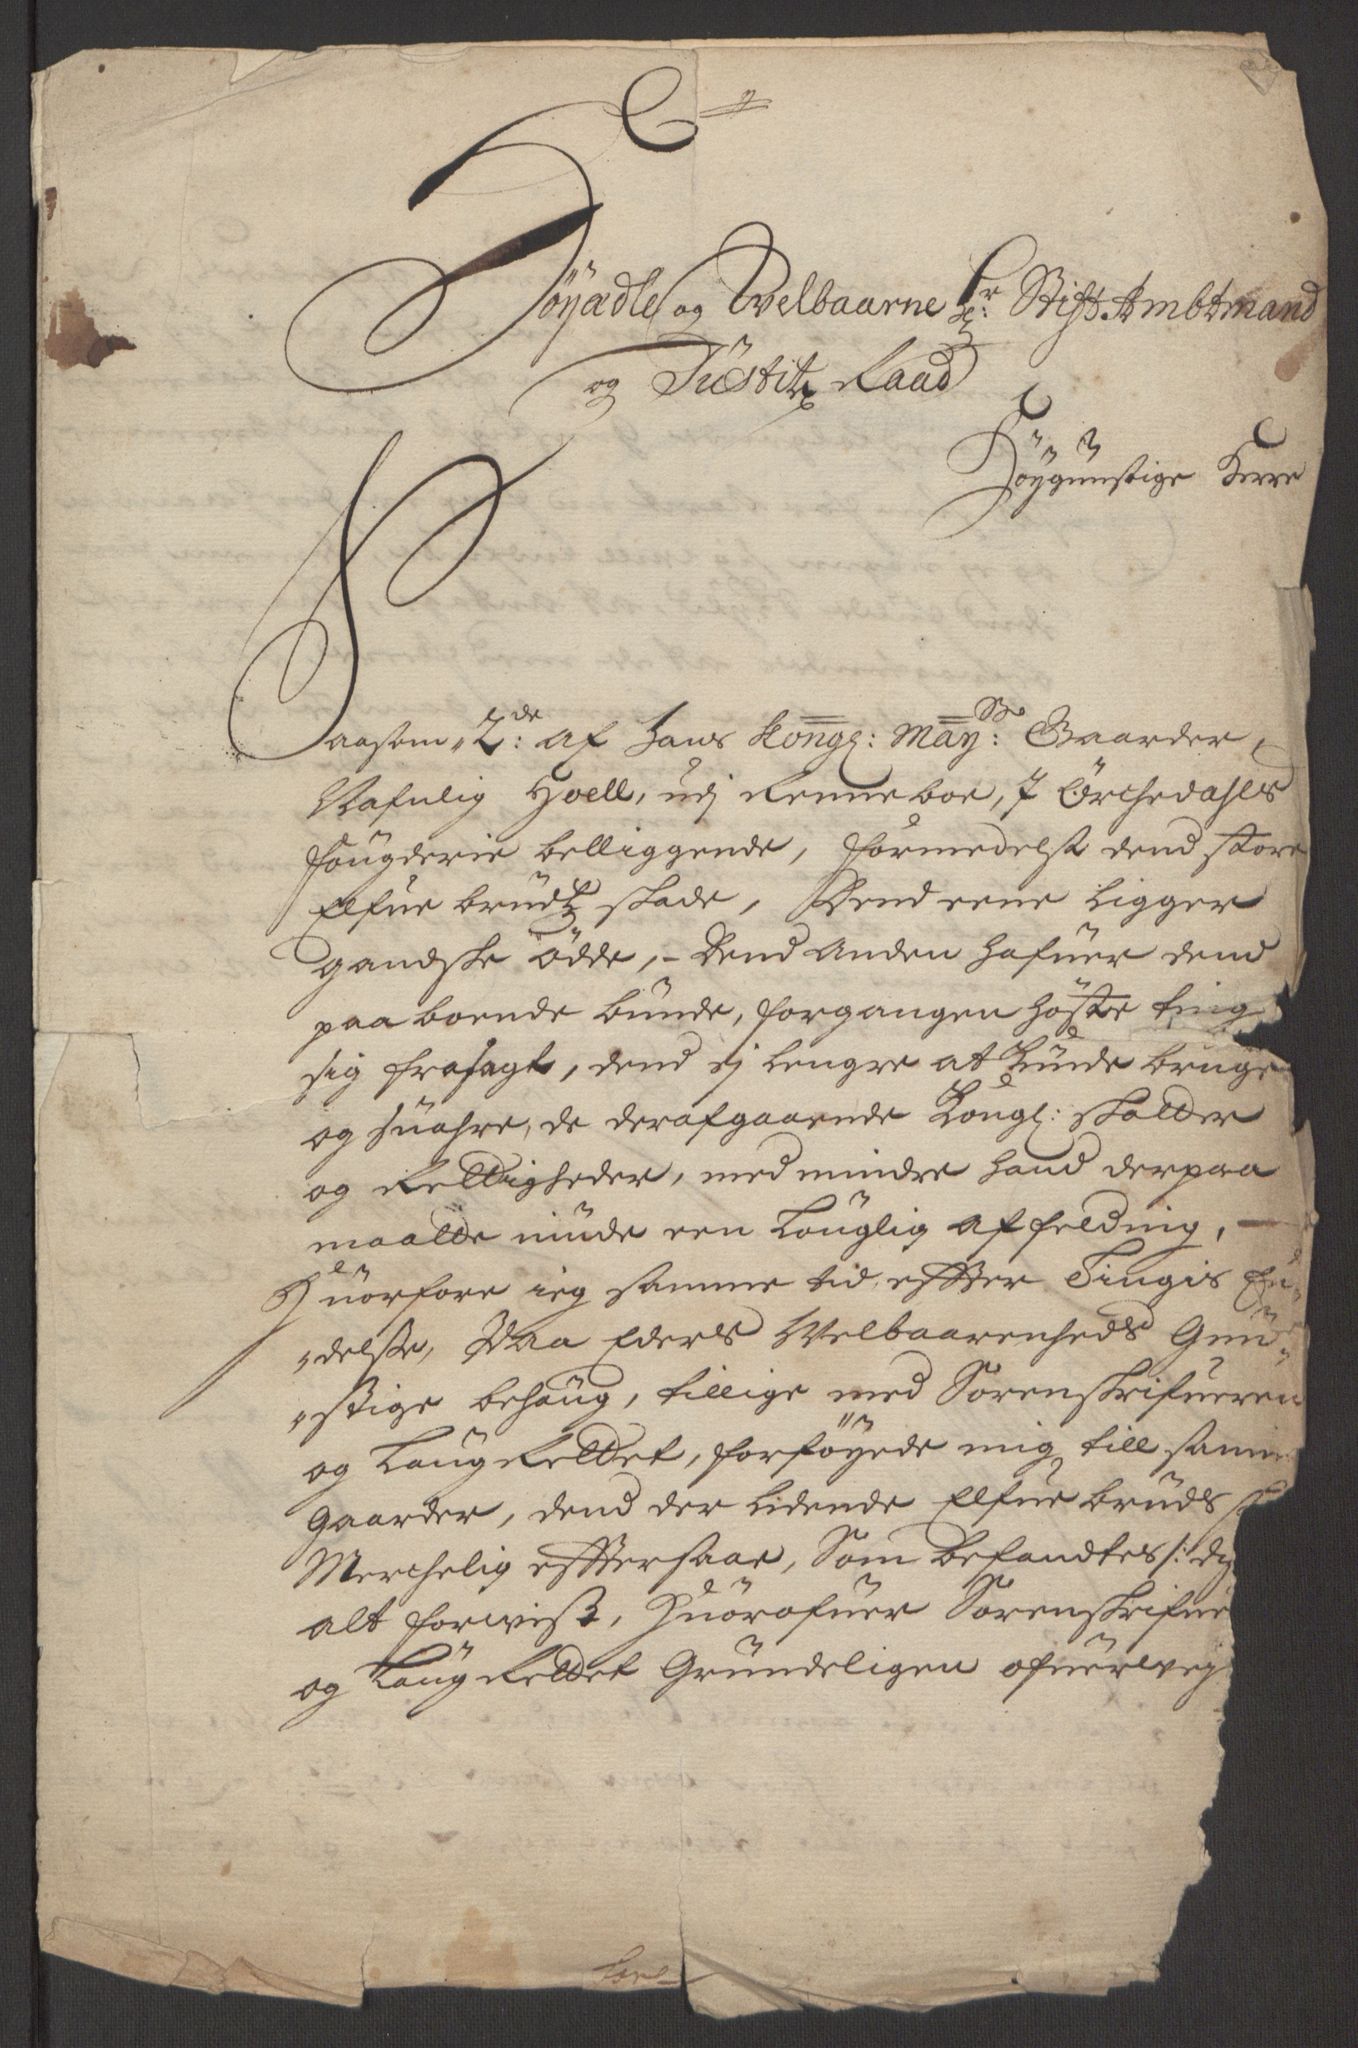 Höyædle og Velbaarne Hr: Stift Ambtmand
og Justitz Raad
Höygunstige Herre
Saasom 2de: af Hans Kongl: May: Gaarder,
Nafnlig Hoell, udj Renneboe, J Örchedahls
fougderie belliggende, formedelst dend store
Elfue brudtz skade, Dend eene Ligger
gandske ödde, - Dend Anden hafuer dend
paa boende bunde, forgangen höste ting
sig frasagt, dend ej lengre at kunde bruge
og suahre, de derafgaaende Kongl: skatter
og Rettigheder, med mindre hand derpaa
maatte niude een Louglig affelding,
Huorfore ieg samme tid effter Tingis En-
delse, Paa Eders Velbaarenheds Gun-
stige behaug, tillige med Sorenskrifueren
og Laug Rettet, forföyede mig till samme
Gaarder, dend der lidende Elfue bruds
Merchelig effttersaae, Som befandtes
alt forvist, Huorofuer Sorenskrifue
og Laug Rettet Grundeligen ofuerveg